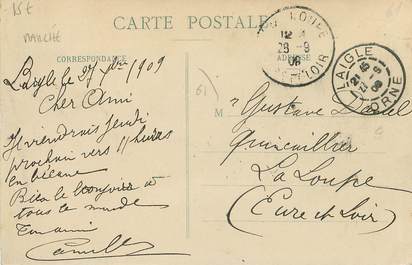 15 €
MARCHÉ
CARTE POSTALE
CORRESPONDANCE
ADRESSE
LA LOUPE
12
28 -9
09
EURE-ET-LOIR
LAIGLE
ORNE
61
Laigle le 27 7bre 1909
Cher Ami
Je viendrais Jeudi
prochain vers 11 heures
en bécane
Bien le bonjour à
tous le monde
Ton ami
Camille
M Gustave
Quincaillier
La Loupe
(Eure et Loir)